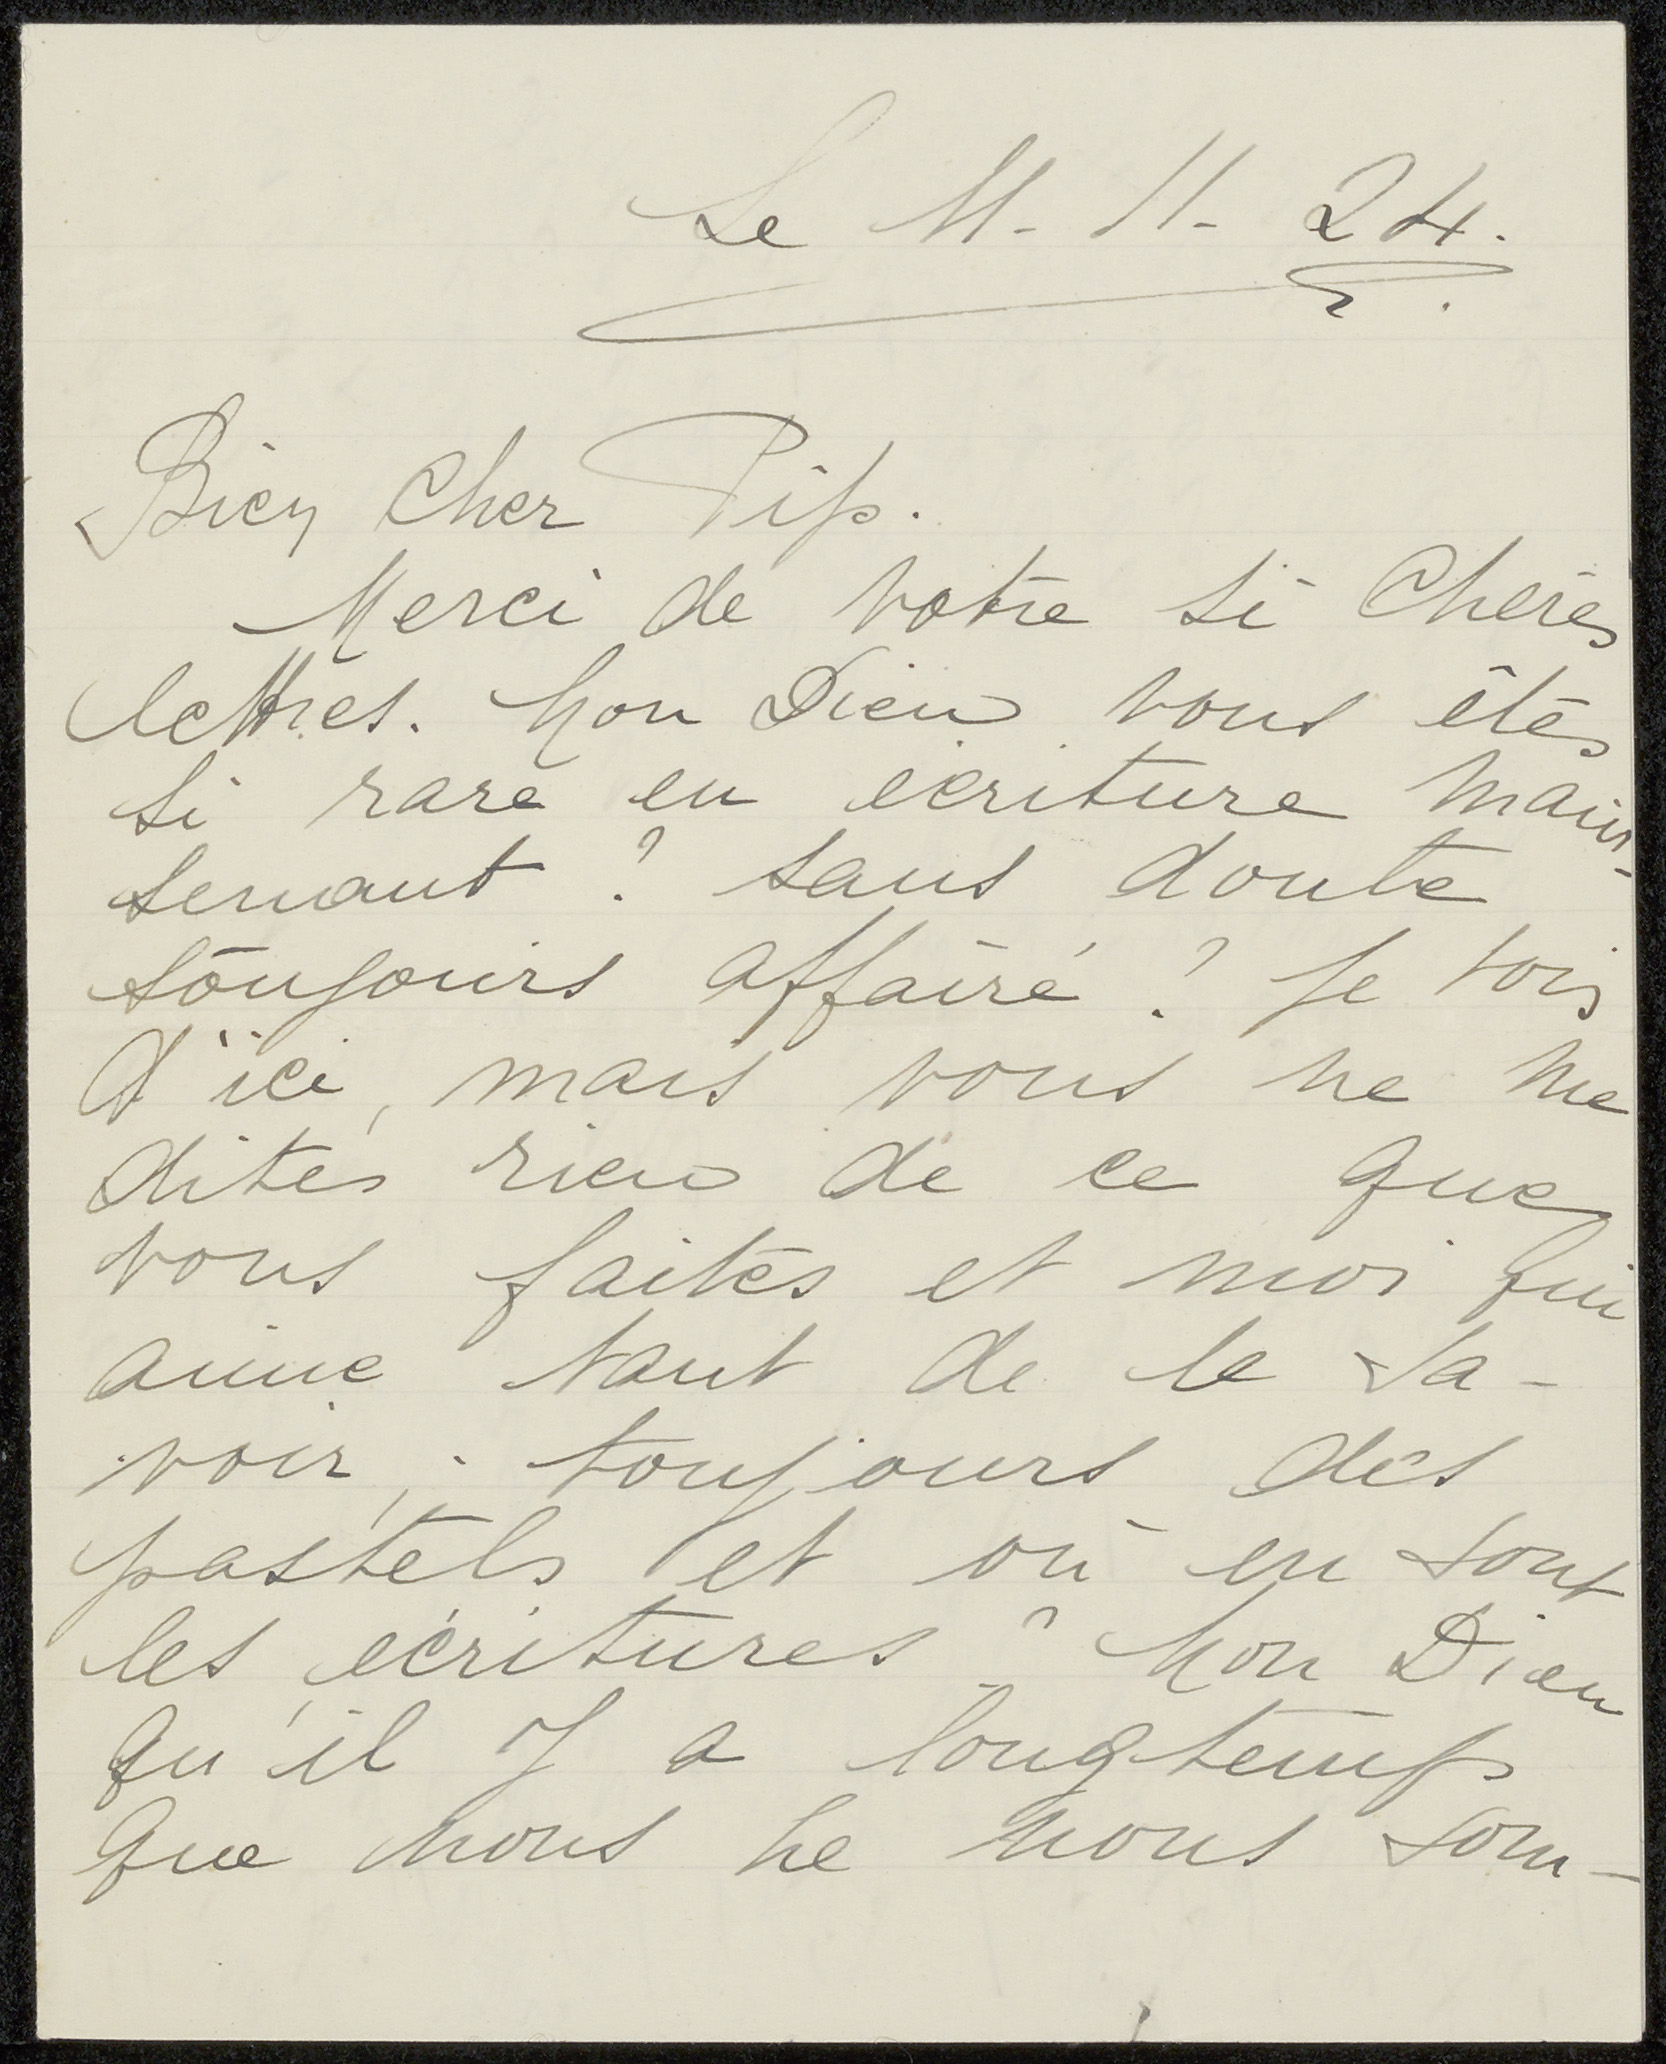 Le 11-11-24.
Bien Cher Pip.
Merci de votre si Chères
lettres. Mon Dieu vous êtes
si rare en ecriture main-
tenant ? sans doute
toujours affairé ? Je vois
d'ici, mais vous ne me
dites rien de ce que
vous faites et moi qui
aime tant de le sa-
voir, toujours des
pastels et où en sont
les écritures ? Mon Dieu
qu'il y a longtemps
que nous ne nous som-